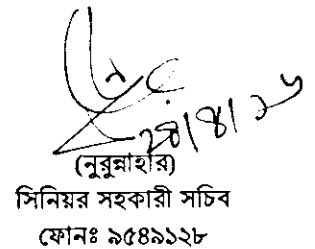 (নুরুন্নাহার)
সিনিয়র সহকারী সচিব
ফোনঃ ৯৫৪৯১২৮